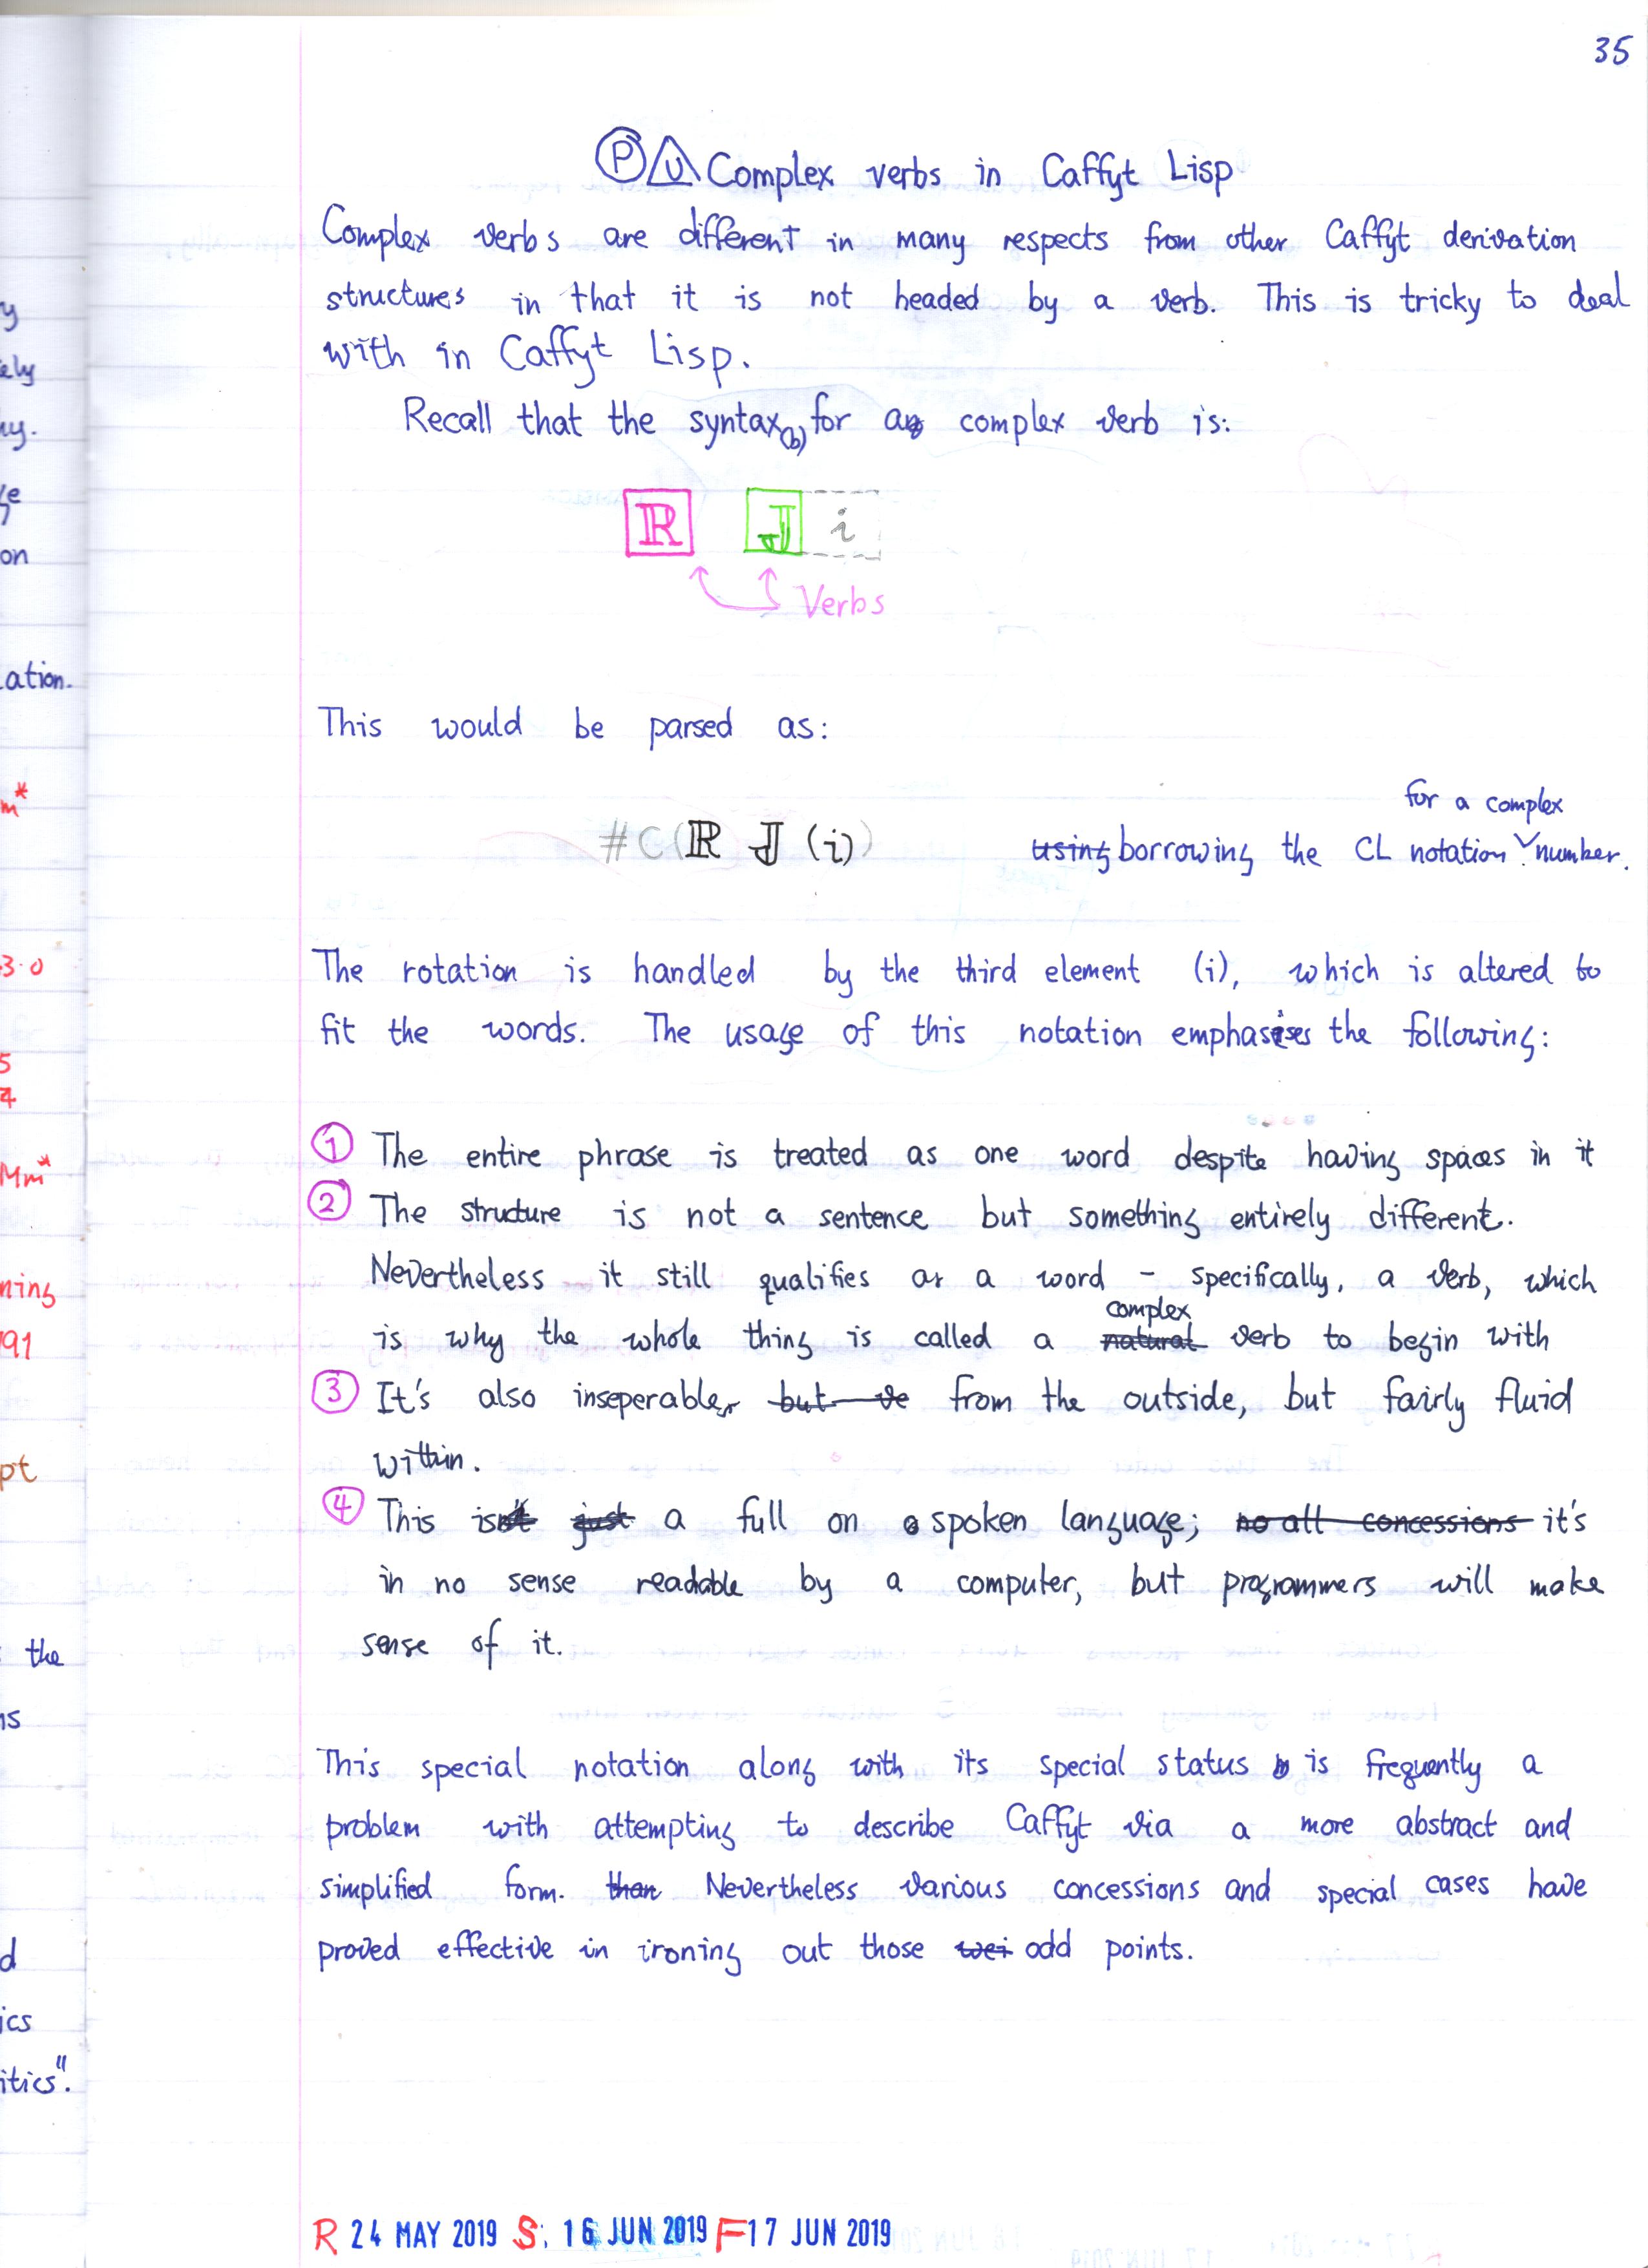 35
P U Complex verbs in Caffyt Lisp
Complex verbs are different in many respects from other Caffyt derivation
structures in that it is not headed by a verb. This is tricky to deal
with in Caffyt Lisp.
Recall that the syntax(b) for a complex verb is:
ℝ 𝕁 i
Verbs
This would be parsed as:
for a complex
#C(ℝ 𝕁 (i)) using borrowing the CL notation number.
The rotation is handled by the third element (i), which is altered to
fit the words. The usage of this notation emphasises the following:
1 The entire phrase is treated as one word despite having spaces in it
2 The structure is not a sentence but something entirely different.
Nevertheless it still qualifies as a word - specifically, a verb, which
complex
is why the whole thing is called a natural verb to begin with
3 It's also inseperable, but ve from the outside, but fairly fluid
within.
4 This isn't just a full on spoken language; no all concessions it's
in no sense readable by a computer, but programmers will make
sense of it.
This special notation along with its special status is frequently a
problem with attempting to describe Caffyt via a more abstract and
simplified form. than Nevertheless various concessions and special cases have
proved effective in ironing out those wei odd points.
R 24 MAY 2019 S: 16 JUN 2019 F 17 JUN 2019
y
ely
ny.
on
ation.
m*
3.0
5
4
Mm*
ning
91
pt
the
ns
d
ics
itics".